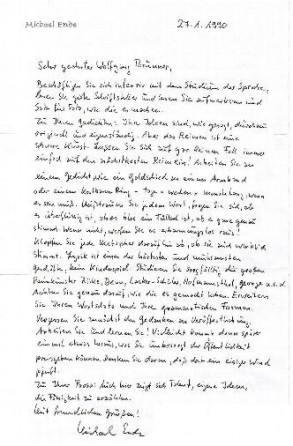 Michael Ende
27.1.1990
Sehr geehrter Wolfgang
Beschäftigen Sie sich intensiv mit dem Studium der Sprache,
lesen Sie gute Schriftsteller und lernen Sie aufmerksam und
Satz für Satz, wie die es machen.
Zu Ihren Gedichten: Ihre Ideen sind, wie gesagt, durchaus
originell und eigenständig. Aber das Reimen ist eine
schwere Kunst. Lassen Sie sich auf gar keinen Fall immer
einfach auf den nächstbesten Reim ein! Arbeiten Sie an
einem Gedicht wie ein Goldschmied an einem Armband
oder einem kostbaren Ring - Tage - wochen - monatelang, wenn
es sein muß. Mißtrauen Sie jedem Wort, fragen Sie sich, ob
es überflüssig ist, ob es bloß ein Füllsel ist, ob es ganz genau
stimmt. Wenn nicht, werfen Sie es erbarmungslos raus!
Klopfen Sie jede Metapher daraufhin ab, ob sie auch wirklich
stimmt. Lyrik ist eines der höchsten und mühsamsten
Gedichte, kein Kinderspiel. Studieren Sie sorgfältig die großen
Rilke, Benn, Lasker-Schüler, Hofmannsthal, George u.s.w.
Achten Sie genau darauf, wie die es gemacht haben. Erweitern
Sie Ihren Wortschatz und Ihre grammatischen Formen.
Vergessen Sie zunächst den Gedanken an Veröffentlichung.
Arbeiten Sie und lernen Sie! Vielleicht kommt dann später
einmal etwas heraus, was Sie unbesorgt der Öffentlichkeit
preisgeben können. Denken Sie daran, daß dort ein eisiger Wind
pfeift.
Zu Ihrer Prosa: Auch hier zeigt sich Talent, eigene Ideen,
die Fähigkeit zu erzählen.
Mit freundlichen Grüßen!
Michael Ende